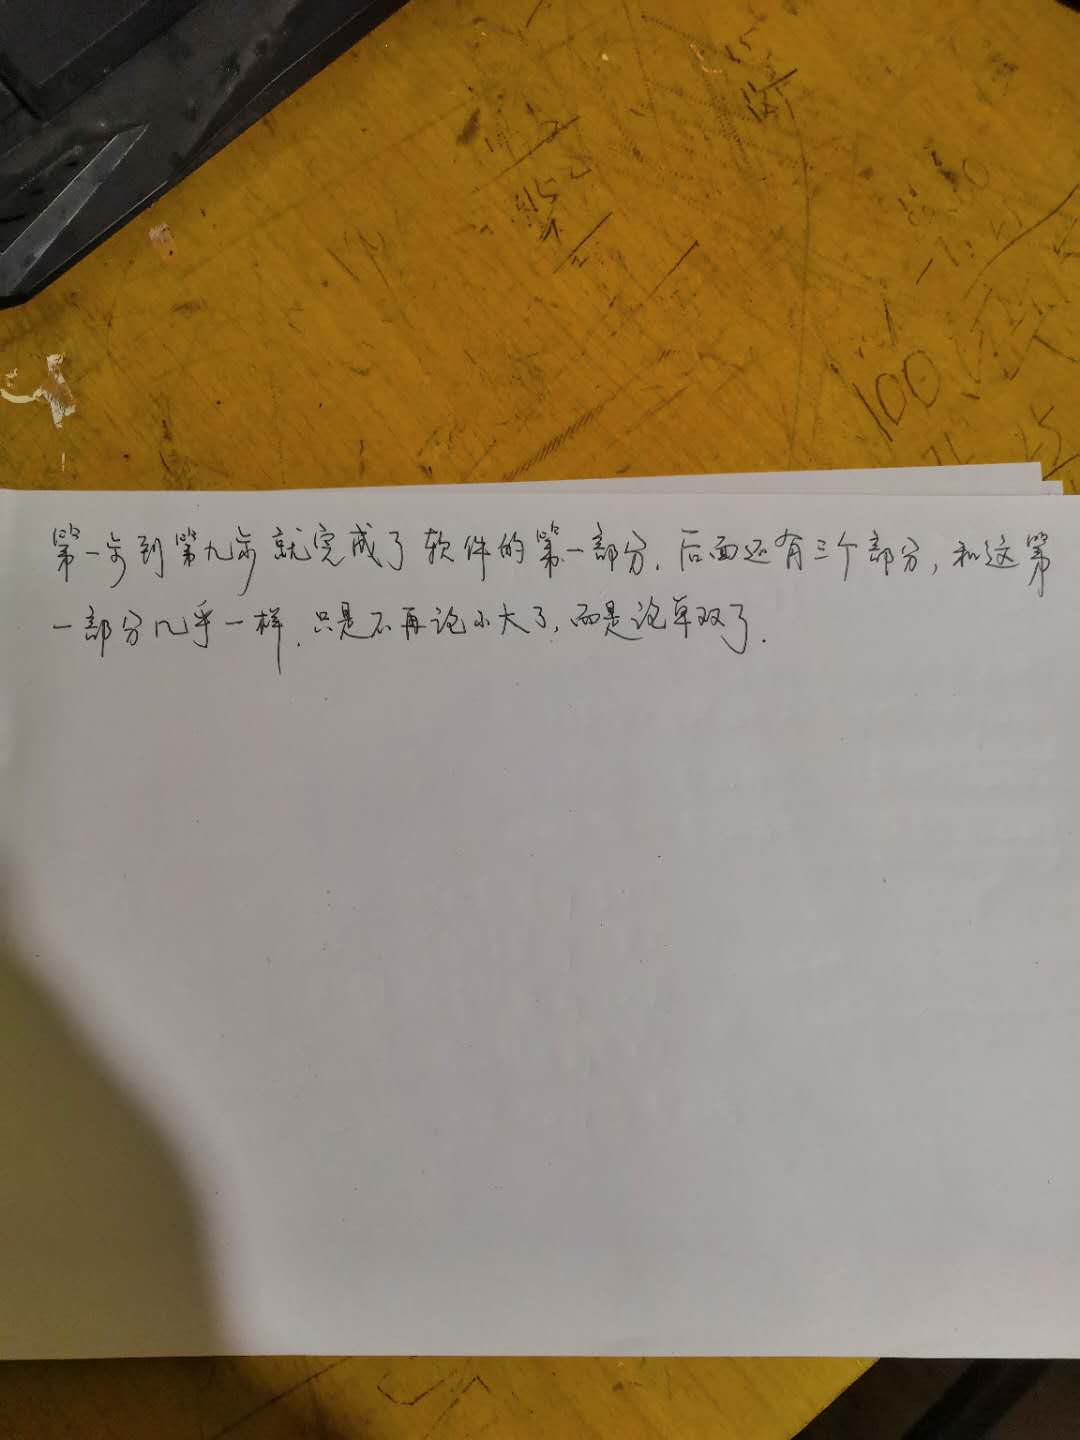 100
第一步到第九步就完成了软件的第一部分.后面还有三个部分,和这第
一部分几乎一样.只是不再论小大了,而是论单双了.